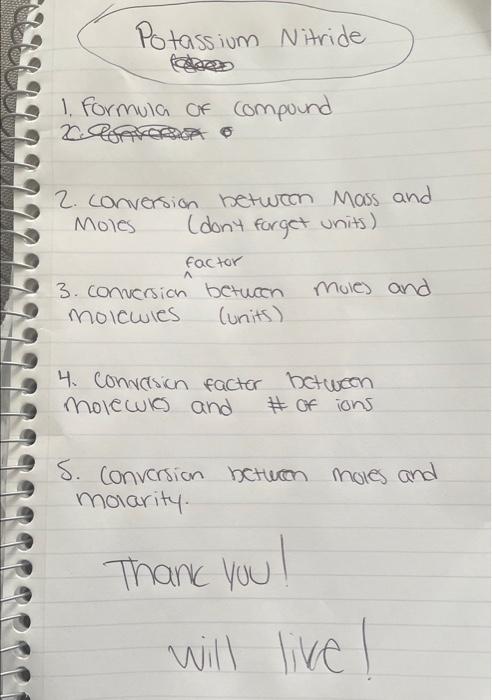 Potassium Nitride
1. formula of compound
2.
2. conversion between Mass and
Moles (don't forget units)
factor
3. conversion ^ between moles and
molecules (units)
4. Conversion factor between
molecules and # of ions
5. Conversion between moles and
molarity.
Thank you!
will live!